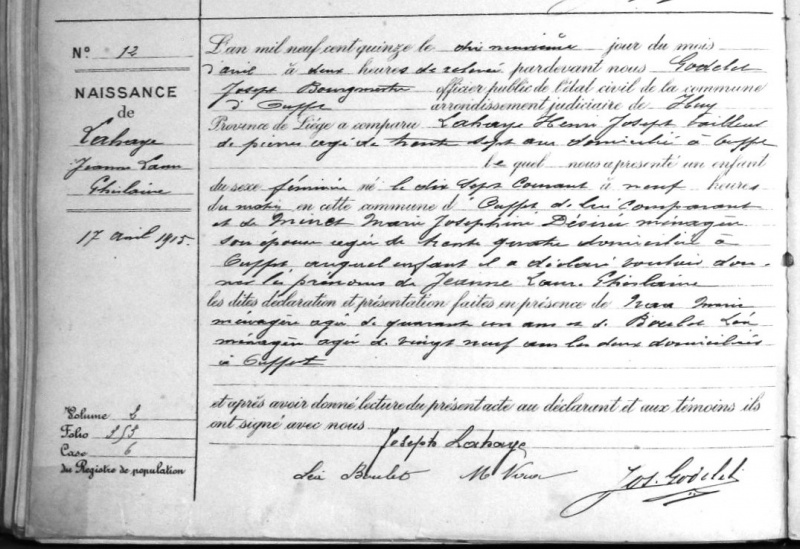 N.º 12
NAISSANCE
de
Lahaye
Jeanne Laure
Ghislaine
17 avril 1915.
Volume 2
Folio
Case 6
du Registre de population
L'an mil neuf cent quinze le dix neuvième jour du mois
d'avril à deux heures de relevée pardevant nous Godelet
Joseph Bourgmestre officier public de l'état civil de la commune
d'Ouffet arrondissement judiciaire de Huy
Province de Liége a comparu Lahaye Henri Joseph tailleur
de pierres agé de trente sept ans domicilié à Ouffet
lequel nous a présenté un enfant
du sexe féminin né le dix sept courant à neuf heures
du matin en cette commune d'Ouffet de lui comparant
et de Minet Marie Joséphine Désirée ménagère
son épouse agée de trente quatre domiciliée à
Ouffet auquel enfant il a déclaré vouloir don-
ner les prénoms de Jeanne Laure Ghislaine
les dites déclaration et présentation faites en présence de Marie
ménagère agée de quarante un ans et de Boulet Léa
ménagère agée de vingt neuf ans les deux domiciliées
à Ouffet
et après avoir donné lecture du présent acte au déclarant et aux témoins ils
ont signé avec nous
Joseph Lahaye
Léa Boulet M Jos. Godelet